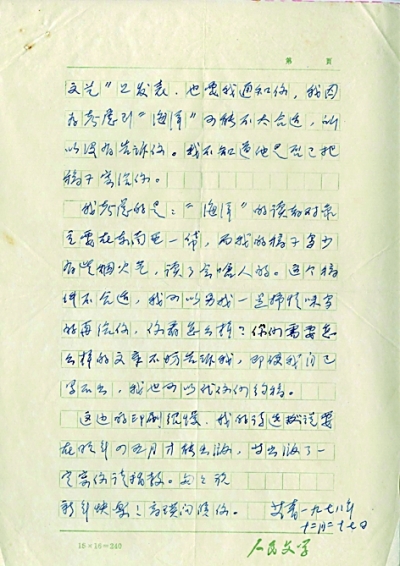 第 頁
文艺”上发表,也要我通知你,我因
为考虑到“海洋”可能不太合适,所
以没有告诉你。我不知道他是否已把
稿子寄给你。
我考虑的是:“海洋”的读者对象
主要在东南亚一带,而我的稿子多少
有些烟火气,读了会呛人的。这个稿
件不合适,我可以另找一些抒情味多
的再给你,你看怎么样?你们需要怎
么样的文章不妨告诉我,即使我自己
写不出,我也可以代你们约稿。
这边的印刷很慢,我的诗选据说要
在明年四五月才能出版,等出版了一
定寄你请指教。匆匆祝
新年快乐!高瑛问候你。 艾青一九七八年
十二月二十七日
15×16=240
人民文学